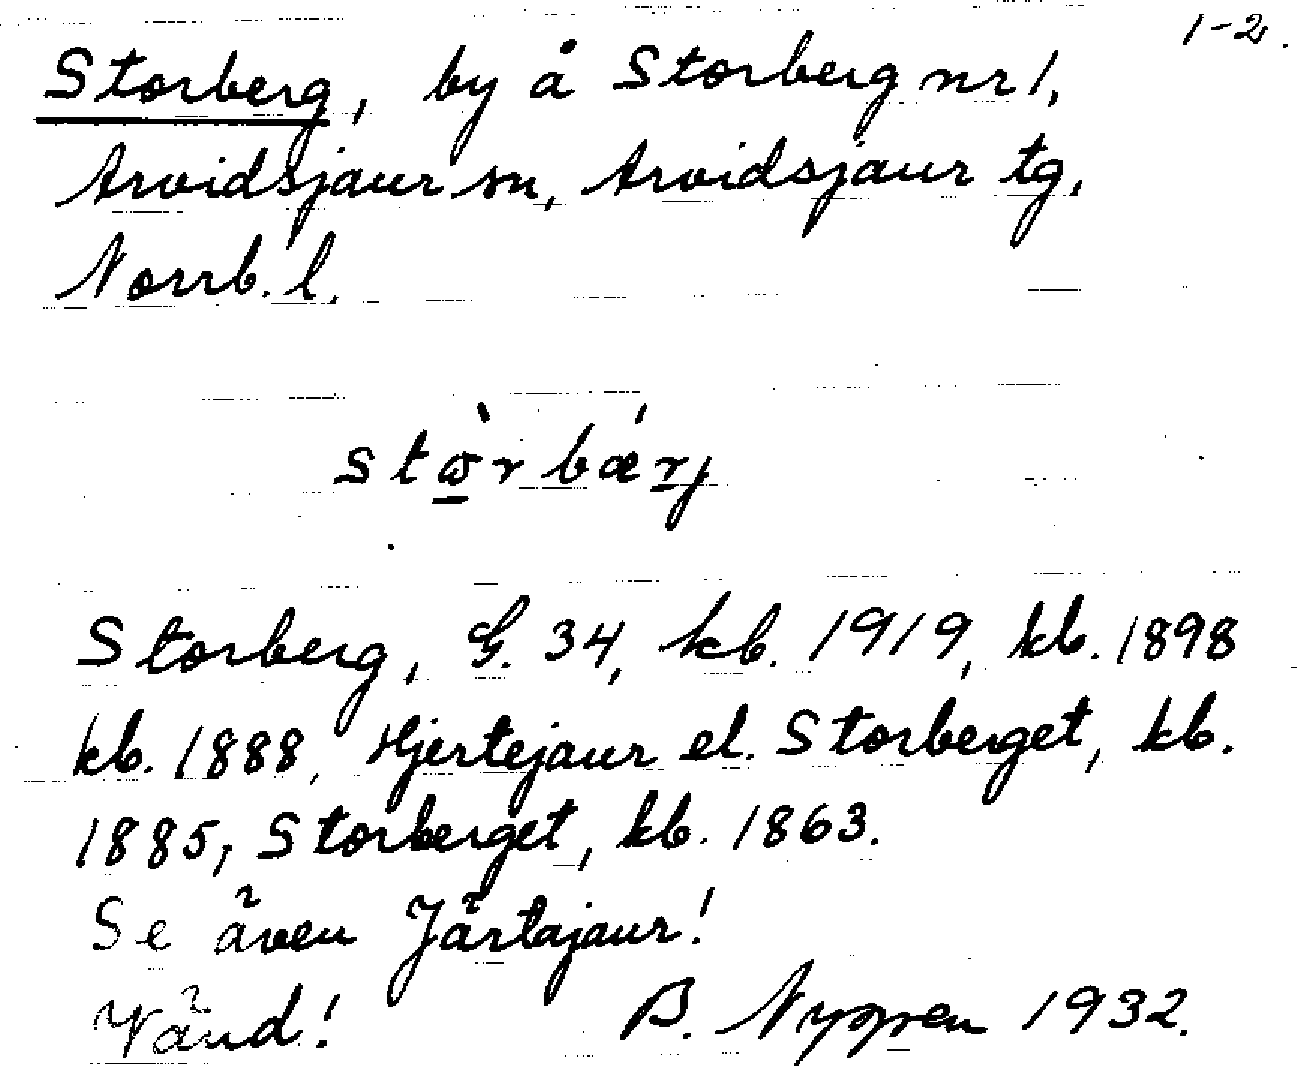 1-2.
Storberg, by å Storberg nr 1,
Arvidsjaur sn, Arvidsjaur tg,
Norrb. l.
stɷ̀rbǽrj
Storberg, G. 34, kb. 1919, kb. 1898
kb. 1888, Hjertejaur el. Storberget, kb.
1885, Storberget, kb. 1863.
Se även Järtajaur!
Vänd! B. Nygren 1932.